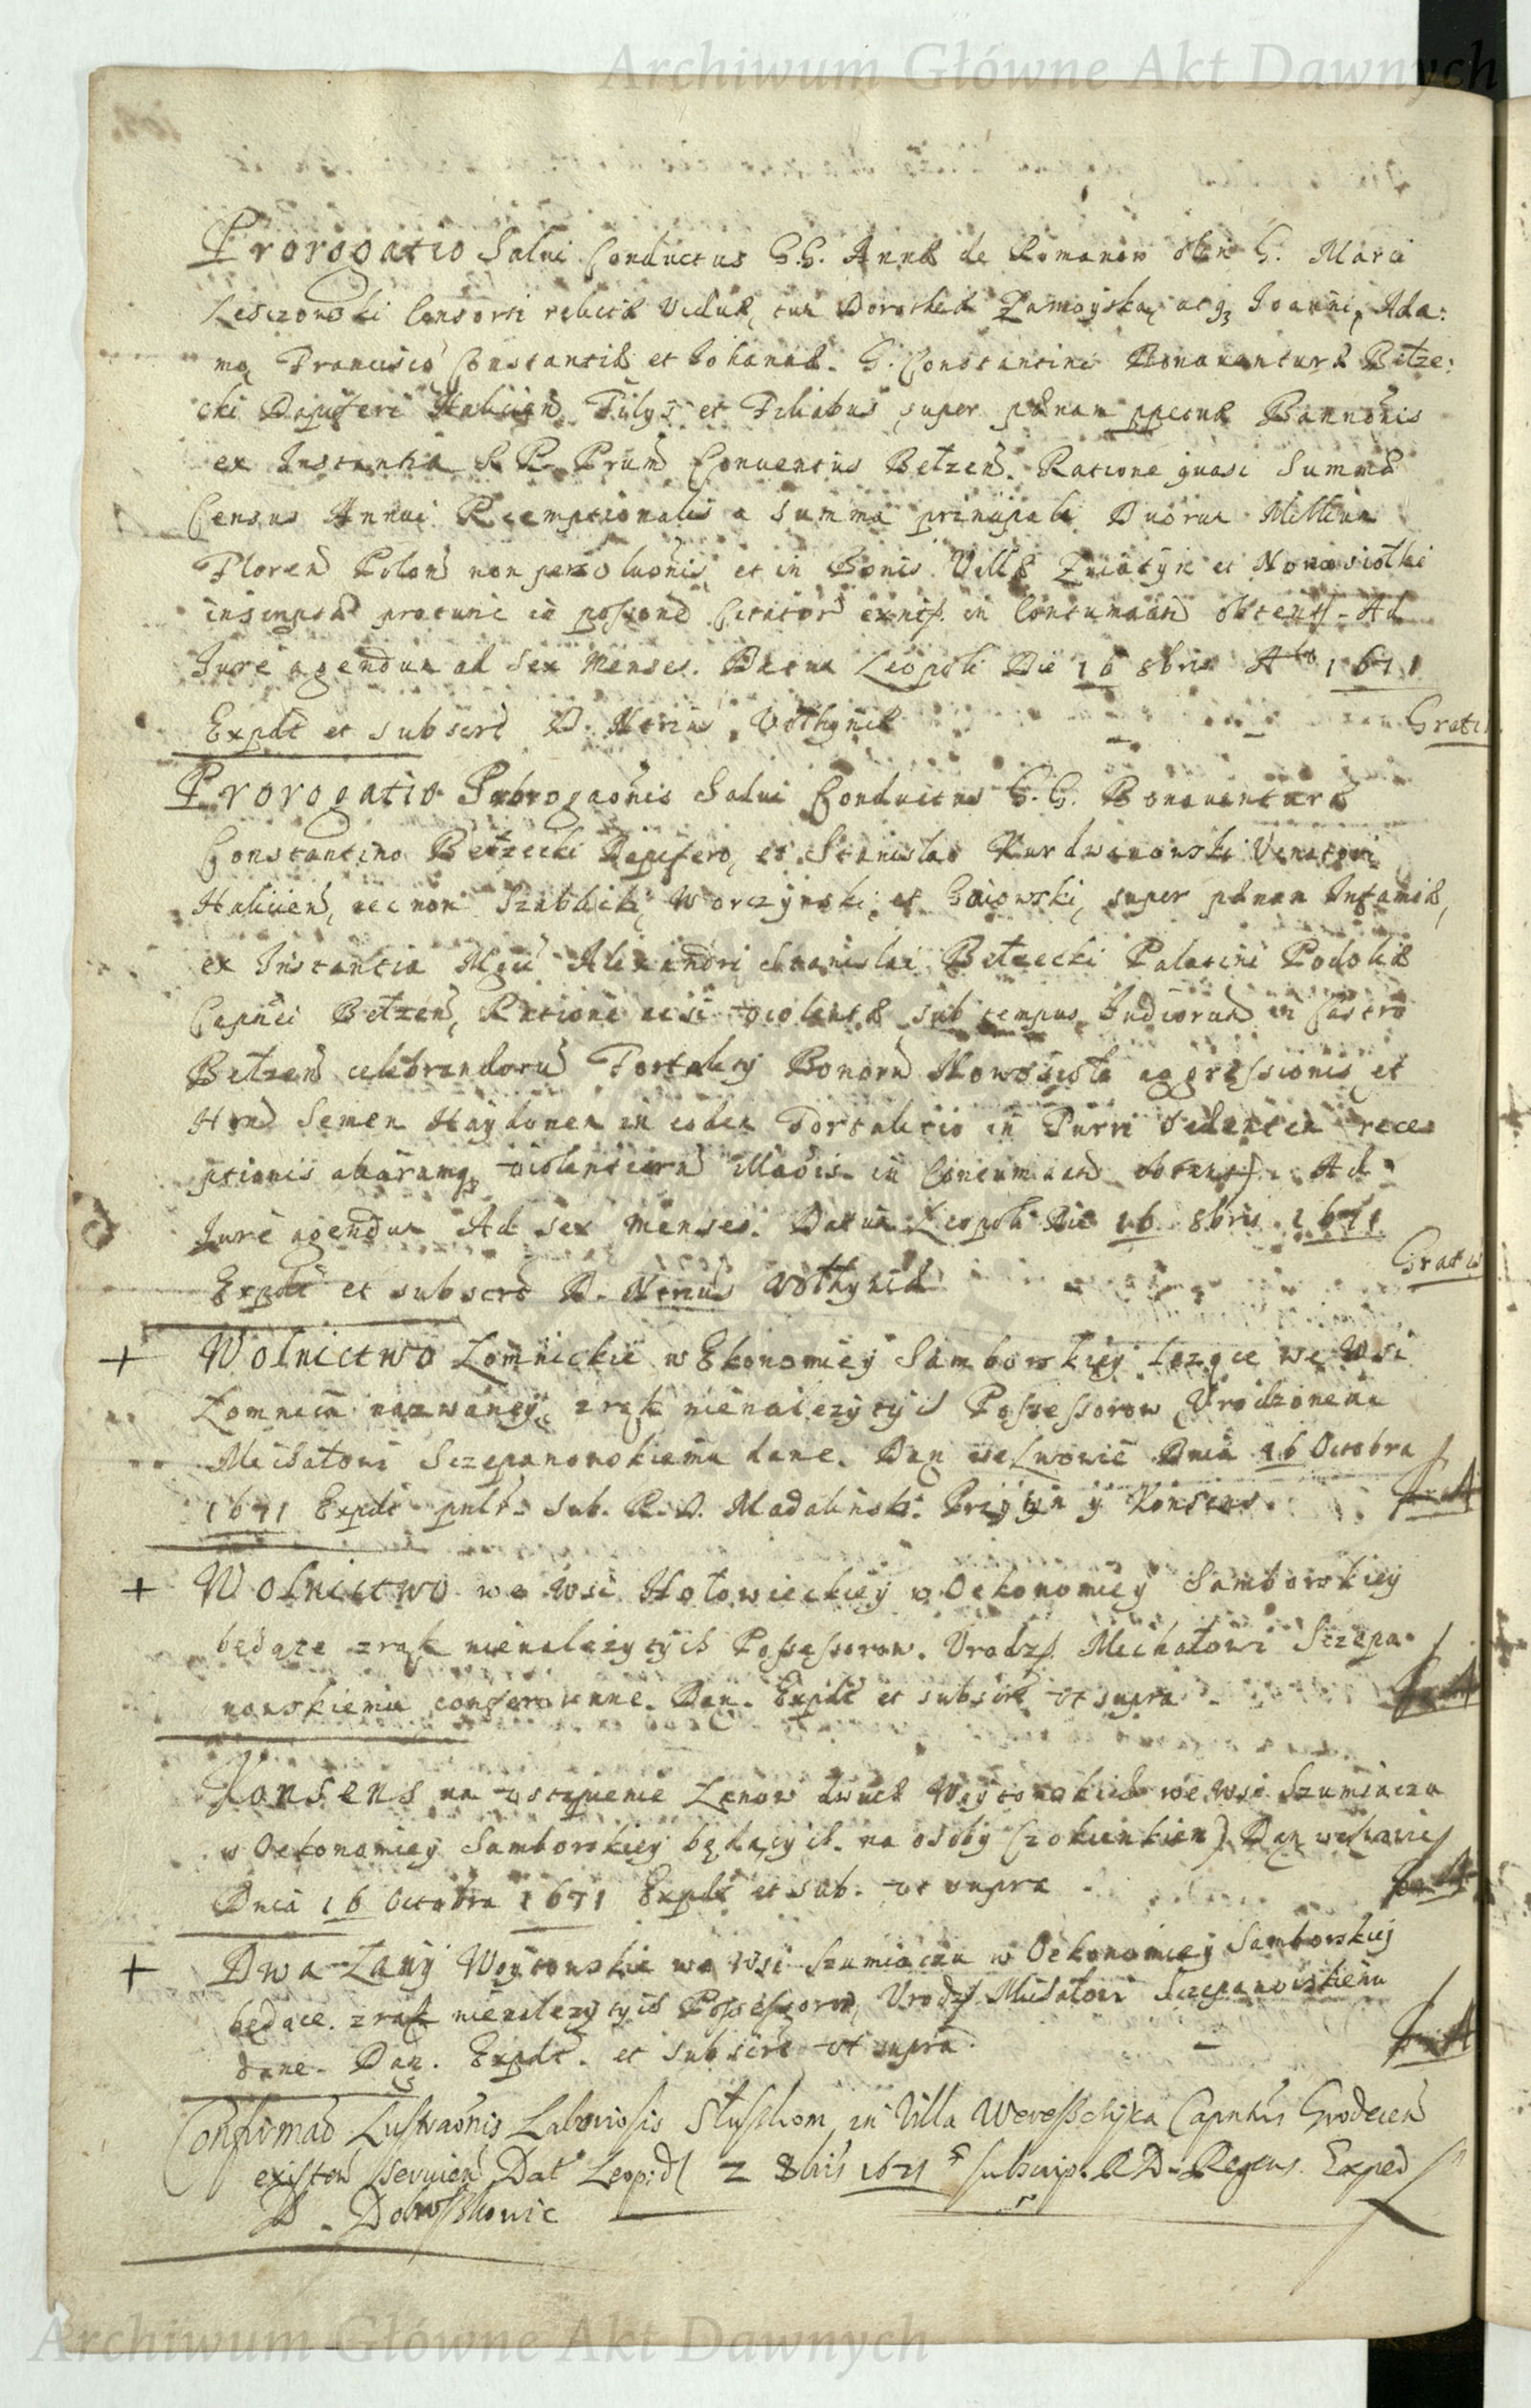 Archiwum Główne Akt Dawnych
Prorogatio Salui Conductus G.G. Annæ de Romanow olim G. Marci
Leszczowski Consorti relictæ Viduæ, tum Dorotheæ Zamoyska, atq3 Joanni, Ada:
mo, Francisco Constantiæ et Johannæ. G. Constantini Bonauenturæ Bełze:
cki Dapiferi Halicien Filys et Filiabus, super pænam ppetuæ Bannonis
ex Instantia RR. Prum Conuentus Bełzen. Ratione quasi Summæ
Census Annui Reemptionalis a summa principali Duorum Millium
Floren Polon non persolutionis et in Bonis Villæ Zniatyn et Nowosiołki
in Contumaciam obtent. Ad
Jure agendum ad sex Menses. Datum Leopoli Die 16 8bris Ao 1671
Expdt et subscrt D. Nrius Wołhyniæ Gratis
Prorogatio Prorogaonis Salui Conductus G.G. Bonauentura
Constantino Bełzecki Dapifero, et Stanislao Kurdwanowski Venatori
Halicien, nec non Szablicki, Worczynski, et Gaiowski, super pænam Infamiæ,
ex Instantia Mgci Alexandri Stanislai Bełzecki Palatini Podoliæ
Capnei Bełzen, Ratione acsi violentæ sub tempus Judiciorum in Castro
Bełzen celebrandoru Fortalicy Bonoru Nowosiołka aggressionis et
Hond Semen Haydonem in eodem Fortalitio in Turri sedentem rece
ptionis aliarumq3 violentiaru illaois in Contumaciam obtent. Ad
Jure agendum Ad sex Menses. Datum Leopoli Die 16 8bris 1671
Expdt et subscrt D. Nrius Wołhyniæ Gratis
+ Wolnictwo Łomnickie w Ekonomiey Samborskiey lezące we Wsi
Łomnica nazwaney, z rąk nienalezytych Possessorow Vrodzonemu
Michałowi Sczepanowskiemu dane. Dan we Lwowie Dnia 16 Octobra
1671 Expdt pnłr. Sub. R.D. Madalinski. Przytym y Konsens.
+ Wolnictwo we Wsi Hołowieckiey w Oekonomiey Samborskiey
będące z rąk nienalezytych Possessorow. Vrodz. Michałowi Sczepa
nowskiemu conferowane. Dan. Expdt et subscrt vt supra
Konsens na vstąpienie Łanow dwuch Woytowskich we Wsi Szumiaczu
w Oekonomiey Samborskiey będących na osoby (z okienkiem) Dan we Lwowie
Dnia 16 Octobra 1671 Expdt et sub. vt supra
+ Dwa Łany Woytowskie we Wsi Szumiaczu w Oekonomiey Samborskiey
będące z rąk nienalezytych Possessorow, Vrodz. Michałowi Sczepanowskiemu
dane. Dan. Expdt. et subscrt vt supra
Confirmao Lustraonis Laboriosis in Villa Weresczyca Capntus Grodecen
existen seruien Dat Leop: d 2 8bris 1671 subscrip. R D. Regens. Exped
D.
Archiwum Główne Akt Dawnych